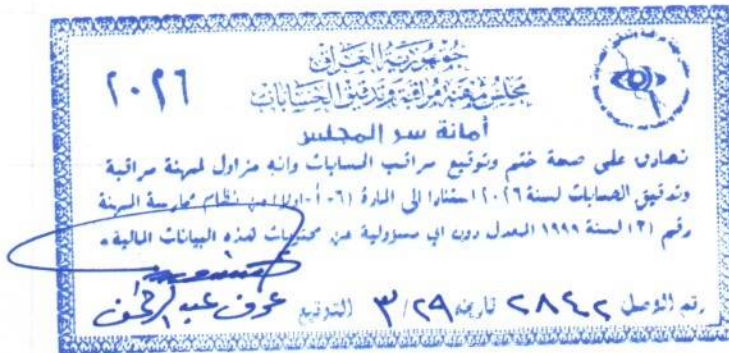 جمهورية العراق
مجلس مهنة مراقبة وتدقيق الحسابات
٢٠٢٦
أمانة سر المجلس
نصادق على صحة ختم وتوقيع مراقب الحسابات وانه مزاول لمهنة مراقبة
وتدقيق الحسابات لسنة ٢٠٢٦ استنادا الى المادة (٦-أ-اولا) من نظام ممارسة المهنة
رقم (٣) لسنة ١٩٩٩ المعدل دون اي مسؤولية عن محتويات هذه البيانات المالية.
رقم الوصل ٢٨٤٢ تاريخه ٣/٢٩ التوقيع